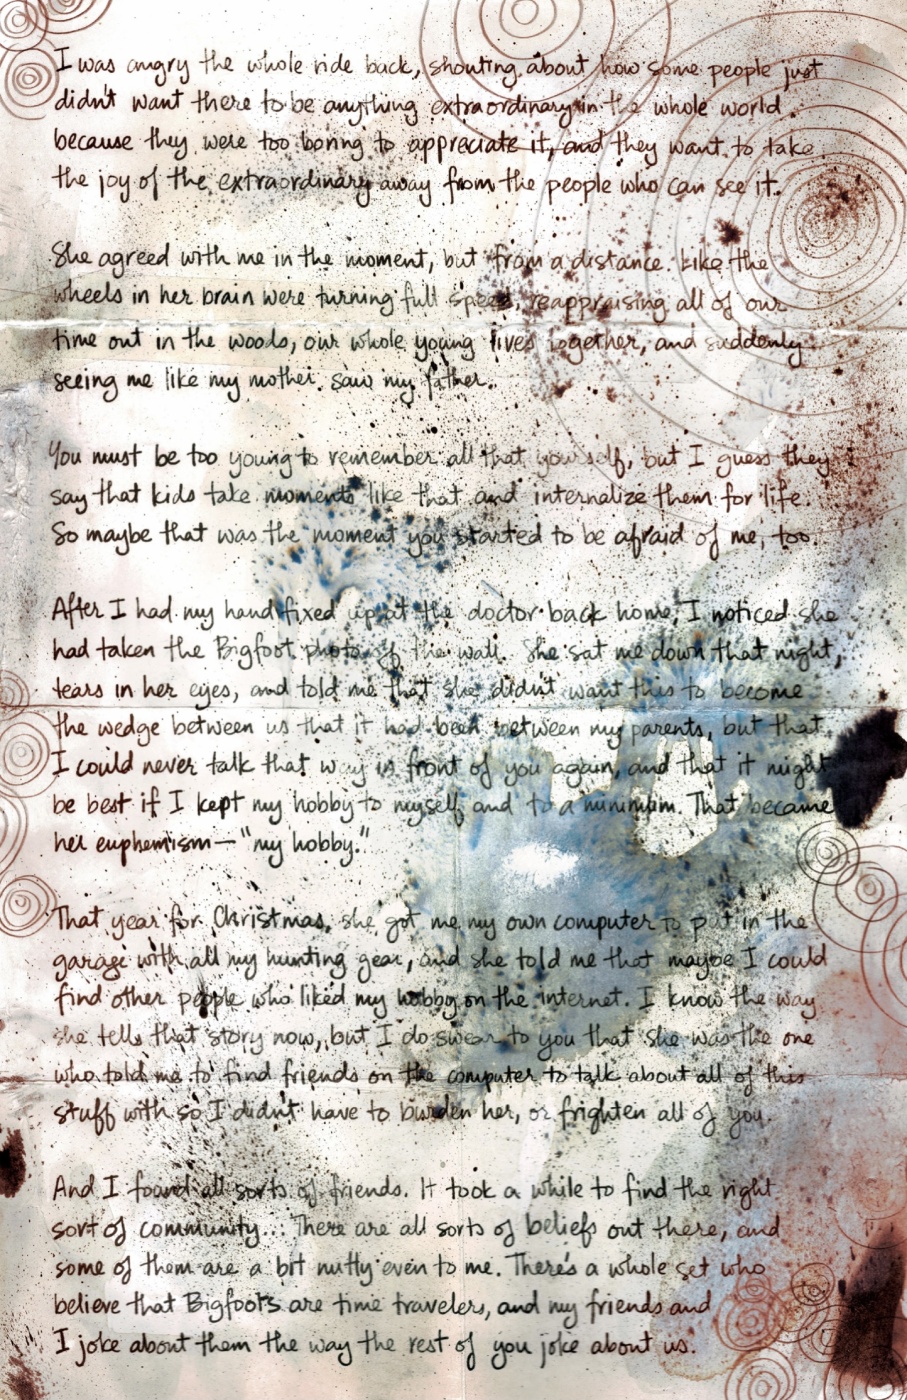 I was angry the whole ride back, shouting about how some people just
didn't want there to be anything extraordinary in the whole world
because they were too boring to appreciate it, and they want to take
the joy of the extraordinary away from the people who can see it.
She agreed with me in the moment, but from a distance. Like the
wheels in her brain were turning full speed, reappraising all of our
time out in the woods, our whole young lives together, and suddenly
seeing me like my mother saw my father.
You must be too young to remember all that yourself, but I guess they
say that kids take moments like that and internalize them for life.
So maybe that was the moment you started to be afraid of me, too.
After I had my hand fixed up at the doctor back home, I noticed she
had taken the Bigfoot photo off the wall. She sat me down that night,
tears in her eyes, and told me that she didn't want this to become
the wedge between us that it had been between my parents, but that
I could never talk that way in front of you again, and that it might
be best if I kept my hobby to myself and to a minimum. That became
her euphemism—"my hobby."
That year for Christmas, she got me my own computer to put in the
garage with all my hunting gear, and she told me that maybe I could
find other people who liked my hobby on the internet. I know the way
she tells that story now, but I do swear to you that she was the one
who told me to find friends on the computer to talk about all of this
stuff with so I didn't have to burden her, or frighten all of you.
And I found all sorts of friends. It took a while to find the right
sort of community... There are all sorts of beliefs out there, and
some of them are a bit nutty even to me. There's a whole set who
believe that Bigfoots are time travelers, and my friends and
I joke about them the way the rest of you joke about us.